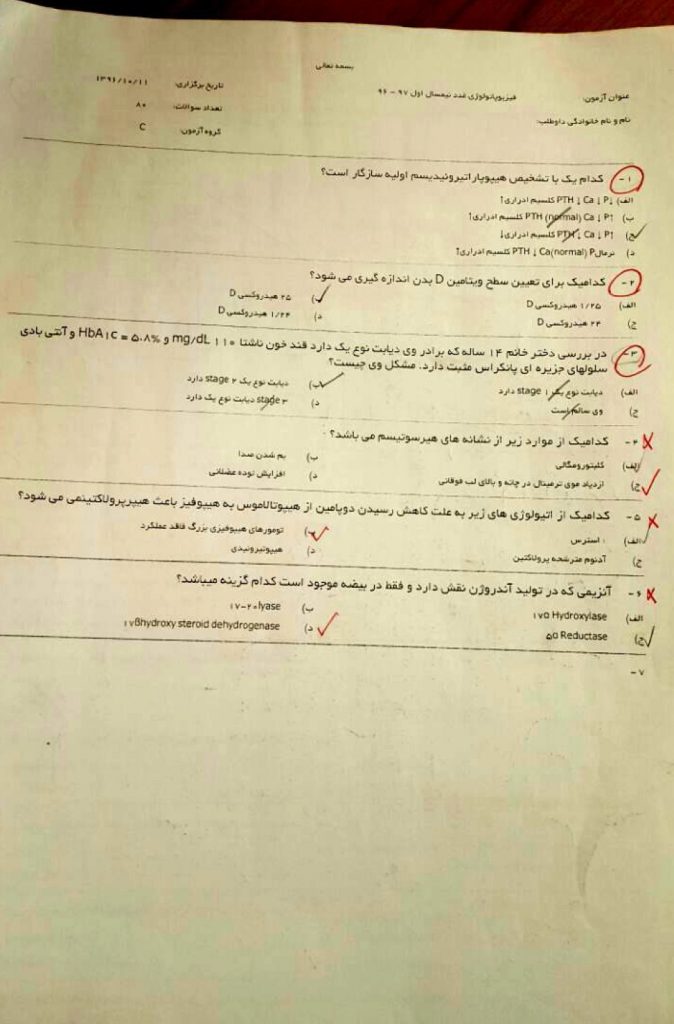 بسمه تعالی
عنوان آزمون: فیزیوپاتولوژی غدد نیمسال اول ۹۷ - ۹۶
تاریخ برگزاری: ۱۳۹۶/۱۰/۱۱
نام و نام خانوادگی داوطلب:
تعداد سوالات: ۸۰
گروه آزمون: C
۱- کدام یک با تشخیص هیپوپاراتیروئیدیسم اولیه سازگار است؟
الف) PTH ↓ Ca ↓ P↓ کلسیم ادراری↑
ب) PTH (normal) Ca ↓ P↑ کلسیم ادراری↑
ج) PTH ↓ Ca ↓ P↑ کلسیم ادراری↓
د) PTH ↓ Ca(normal) Pنرمال کلسیم ادراری↑
۲- کدامیک برای تعیین سطح ویتامین D بدن اندازه گیری می شود؟
الف) ۱/۲۵ هیدروکسی D ب) ۲۵ هیدروکسی D
ج) ۲۴ هیدروکسی D د) ۱/۲۴ هیدروکسی D
۳- در بررسی دختر خانم ۱۴ ساله که برادر وی دیابت نوع یک دارد قند خون ناشتا ۱۱۰ mg/dL و HbA1c = ۵.۸% و آنتی بادی
سلولهای جزیره ای پانکراس مثبت دارد. مشکل وی چیست؟
الف) دیابت نوع یک stage ۱ دارد ب) دیابت نوع یک stage ۲ دارد
ج) وی سالم است د) stage ۳ دیابت نوع یک دارد
۴- کدامیک از موارد زیر از نشانه های هیرسوتیسم می باشد؟
الف) کلیتورومگالی ب) بم شدن صدا
ج) ازدیاد موی ترمینال در چانه و بالای لب فوقانی د) افزایش توده عضلانی
۵- کدامیک از اتیولوژی های زیر به علت کاهش رسیدن دوپامین از هیپوتالاموس به هیپوفیز باعث هیپرپرولاکتینمی می شود؟
الف) استرس ب) تومورهای هیپوفیزی بزرگ فاقد عملکرد
ج) آدنوم مترشحه پرولاکتین د) هیپوتیروئیدی
۶- آنزیمی که در تولید آندروژن نقش دارد و فقط در بیضه موجود است کدام گزینه میباشد؟
الف) ۱۷α Hydroxylase ب) ۱۷-۲۰lyase
ج) ۵α Reductase د) ۱۷βhydroxy steroid dehydrogenase
۷-